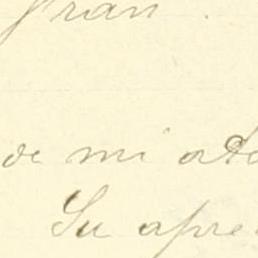 gran
de mi ate
Su apre